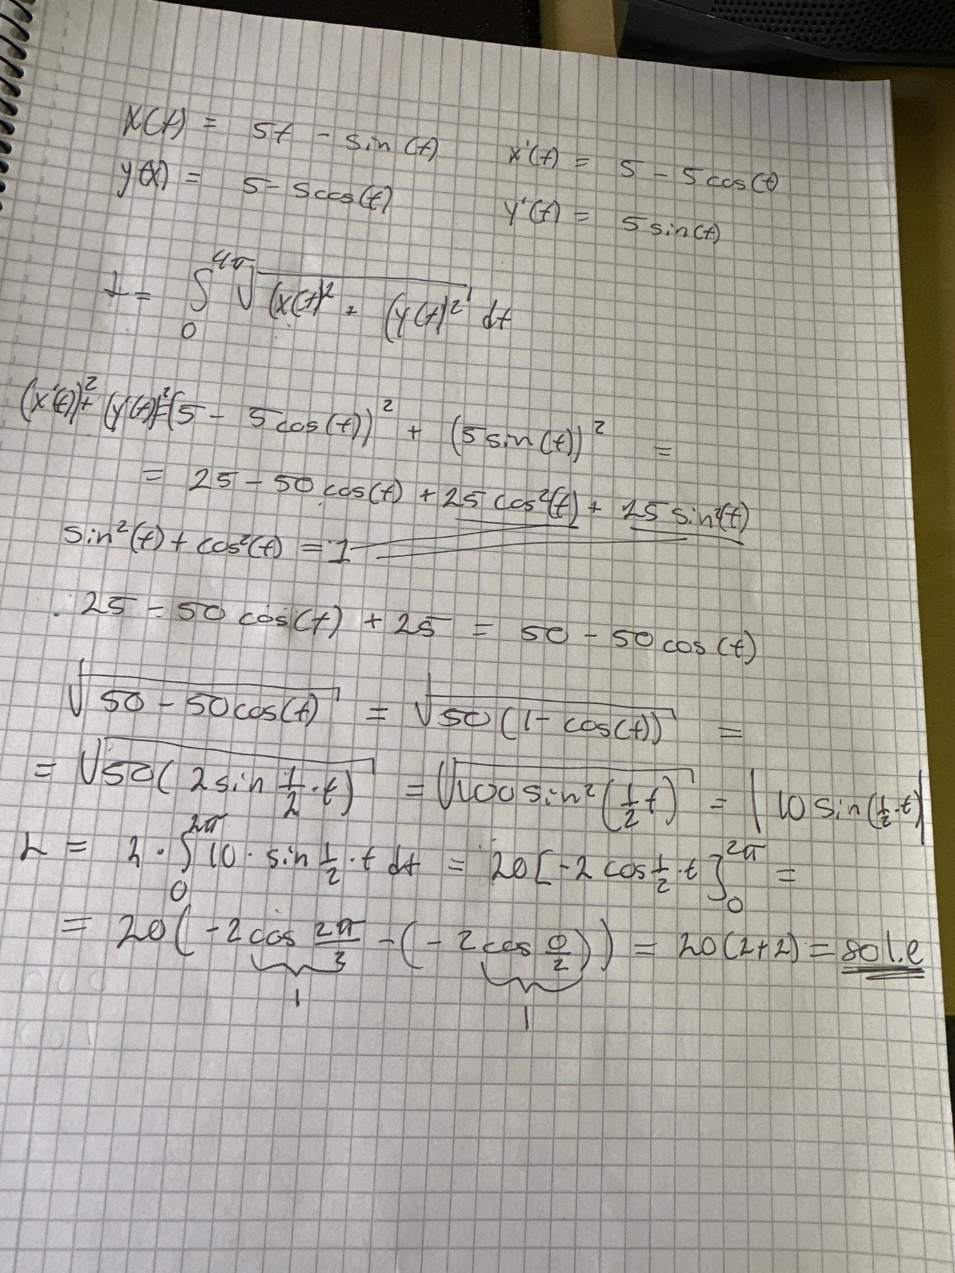 x(t) = 5t - sin(t) x'(t) = 5 - 5cos(t)
y(x) = 5 - 5cos(t) y'(t) = 5 sin(t)
L = ∫₀^4π √((x(t)² + (y(t)²) dt
(x'(t))² + (y'(t))² = (5 - 5cos(t))² + (5 sin(t))² =
= 25 - 50 cos(t) + 25 cos²(t) + 25 sin²(t)
sin²(t) + cos²(t) = 1
25 - 50 cos(t) + 25 = 50 - 50 cos(t)
√(50 - 50cos(t)) = √(50(1 - cos(t))) =
= √(50(2 sin 1/2 · t)) = √(100 sin²(1/2 t)) = |10 sin(1/2 · t)|
L = 2 · ∫₀^2π 10 · sin 1/2 · t dt = 20[-2 cos 1/2 · t]₀^2π =
= 20(-2 cos 2π/3 - (-2 cos 0/2)) = 20(2+2) = 80 l.e
1
1